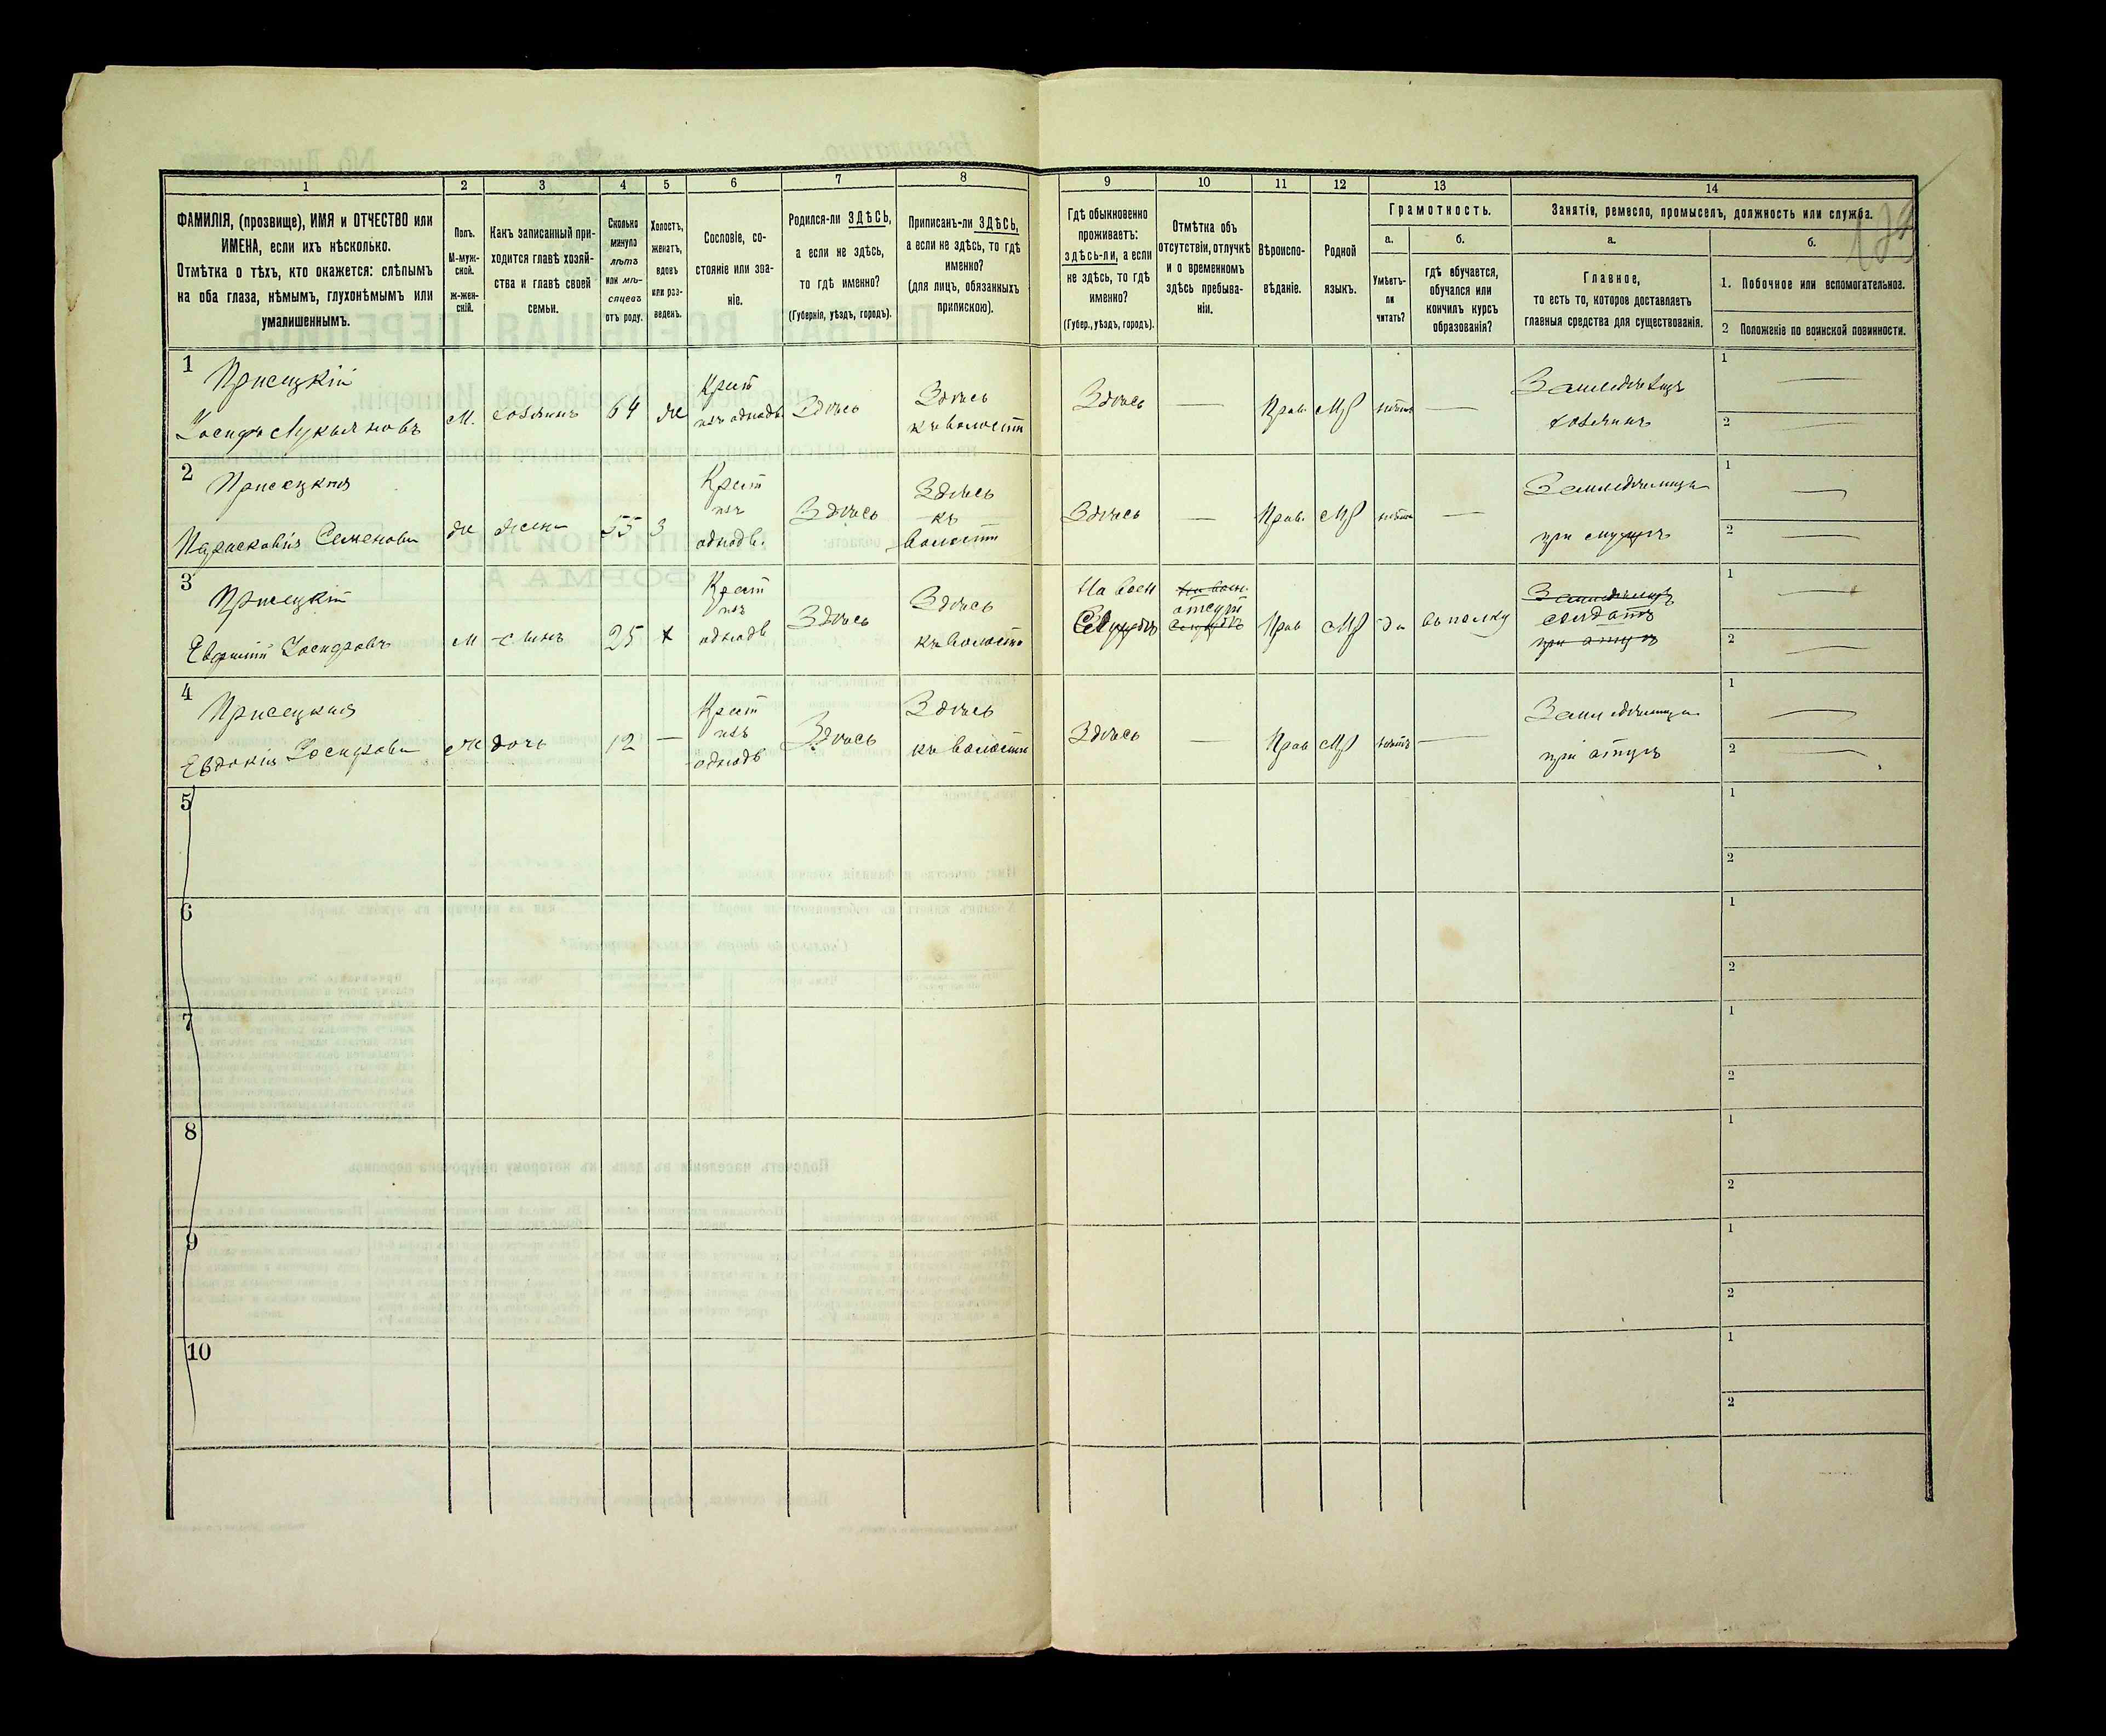 1 2 3 4 5 6 7 8 9 10 11 12 13 14
ФАМИЛІЯ, (прозвище), ИМЯ и ОТЧЕСТВО или
ИМЕНА, если ихъ нѣсколько.
Отмѣтка о тѣхъ, кто окажется: слѣпымъ
на оба глаза, нѣмымъ, глухонѣмымъ или
умалишеннымъ.
Полъ.
М-муж-
ской.
ж-жен-
скій.
Какъ записанный при-
ходится главѣ хозяй-
ства и главѣ своей
семьи.
Сколько
минуло
лѣтъ
или мѣ-
сяцевъ
отъ роду.
Холостъ,
женатъ,
вдовъ
или раз-
веденъ.
Сословіе, со-
стояніе или зва-
ніе.
Родился-ли ЗДѢСЬ,
а если не здѣсь,
то гдѣ именно?
(Губернія, уѣздъ, городъ).
Приписанъ-ли ЗДѢСЬ,
а если не здѣсь, то гдѣ
именно?
(для лицъ, обязанныхъ
припискою).
Гдѣ обыкновенно
проживаетъ:
здѣсь-ли, а если
не здѣсь, то гдѣ
именно?
(Губер., уѣздъ, городъ).
Отмѣтка объ
отсутствіи, отлучкѣ
и о временномъ
здѣсь пребыва-
ніи.
Вѣроиспо-
вѣданіе.
Родной
языкъ.
Грамотность.
а.
Умѣетъ-
ли
читать?
б.
гдѣ обучается,
обучался или
кончилъ курсъ
образованія?
Занятіе, ремесло, промыселъ, должность или служба.
а.
Главное,
то есть то, которое доставляетъ
главныя средства для существованія.
б.
1. Побочное или вспомогательное.
2 Положеніе по воинской повинности.
1
Присецкій
Іосифъ Лукьяновъ
М.
хозяинъ
64
ж
Крест
изъ однодв
Здѣсь
Здѣсь
къ волости
Здѣсь
—
Прав.
Мр
нѣтъ
—
Земледѣлецъ
хозяинъ
1 —
2 —
2
Присецкая
Парасковія Семенова
ж
жена
55
З
Крест
изъ
однодв.
Здѣсь
Здѣсь
къ
волости
Здѣсь
—
Прав.
Мр
нѣтъ
—
Земледѣлица
при мужѣ
1 —
2 —
3
Присецкій
Евфимій Іосифовъ
М
сынъ
25
х
Крест
изъ
однодв
Здѣсь
Здѣсь
къ волости
На воен
Службѣ
На воен.
отсут
Службѣ
Прав
Мр
да
въ полку
Земледѣлецъ
солдатъ
при отцѣ
1 —
2 —
4
Присецкая
Евдокія Іосифова
ж
дочь
12
—
Крест
изъ
однодв
Здѣсь
Здѣсь
къ волости
Здѣсь
—
Прав
Мр
нѣтъ
—
Земледѣлица
при отцѣ
1 —
2 —
5
1
2
6
1
2
7
1
2
8
1
2
9
1
2
10
1
2